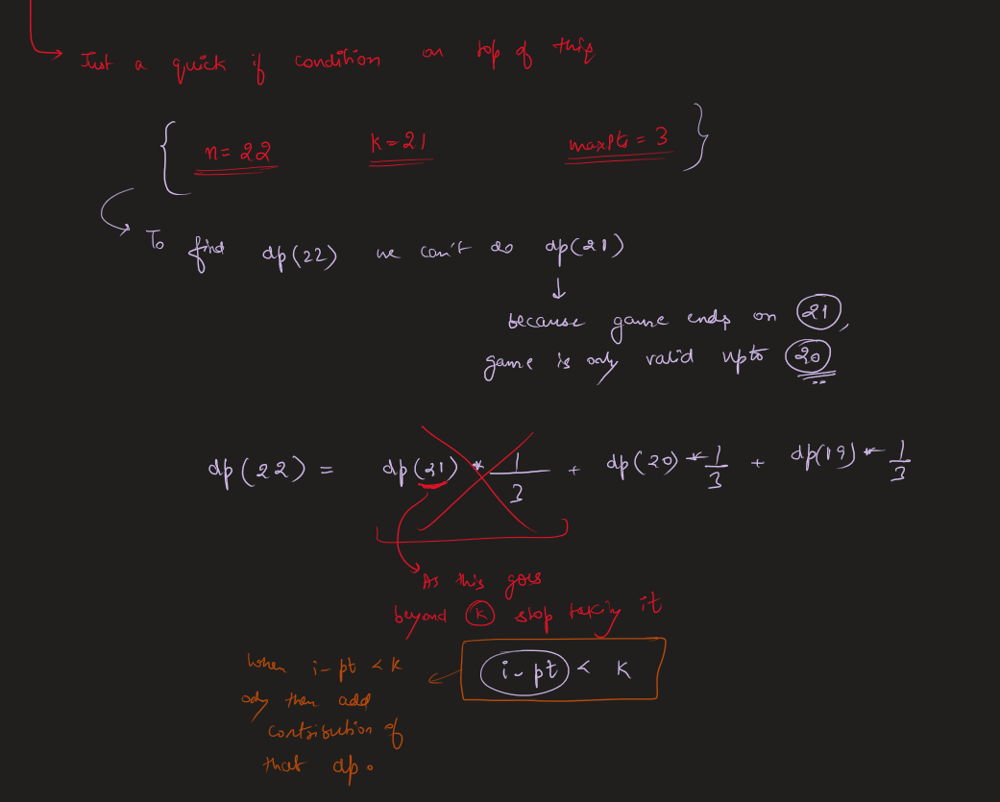 Just a quick if condition on top of this
{ n = 22 k = 21 maxPts = 3 }
To find dp(22) we can't do dp(21)
because game ends on 21,
game is only valid upto 20
dp(22) = dp(21) * 1/3 + dp(20) * 1/3 + dp(19) * 1/3
As this goes
beyond k stop taking it
i - pt < k
When i - pt < k
only then add
contribution of
that dp.